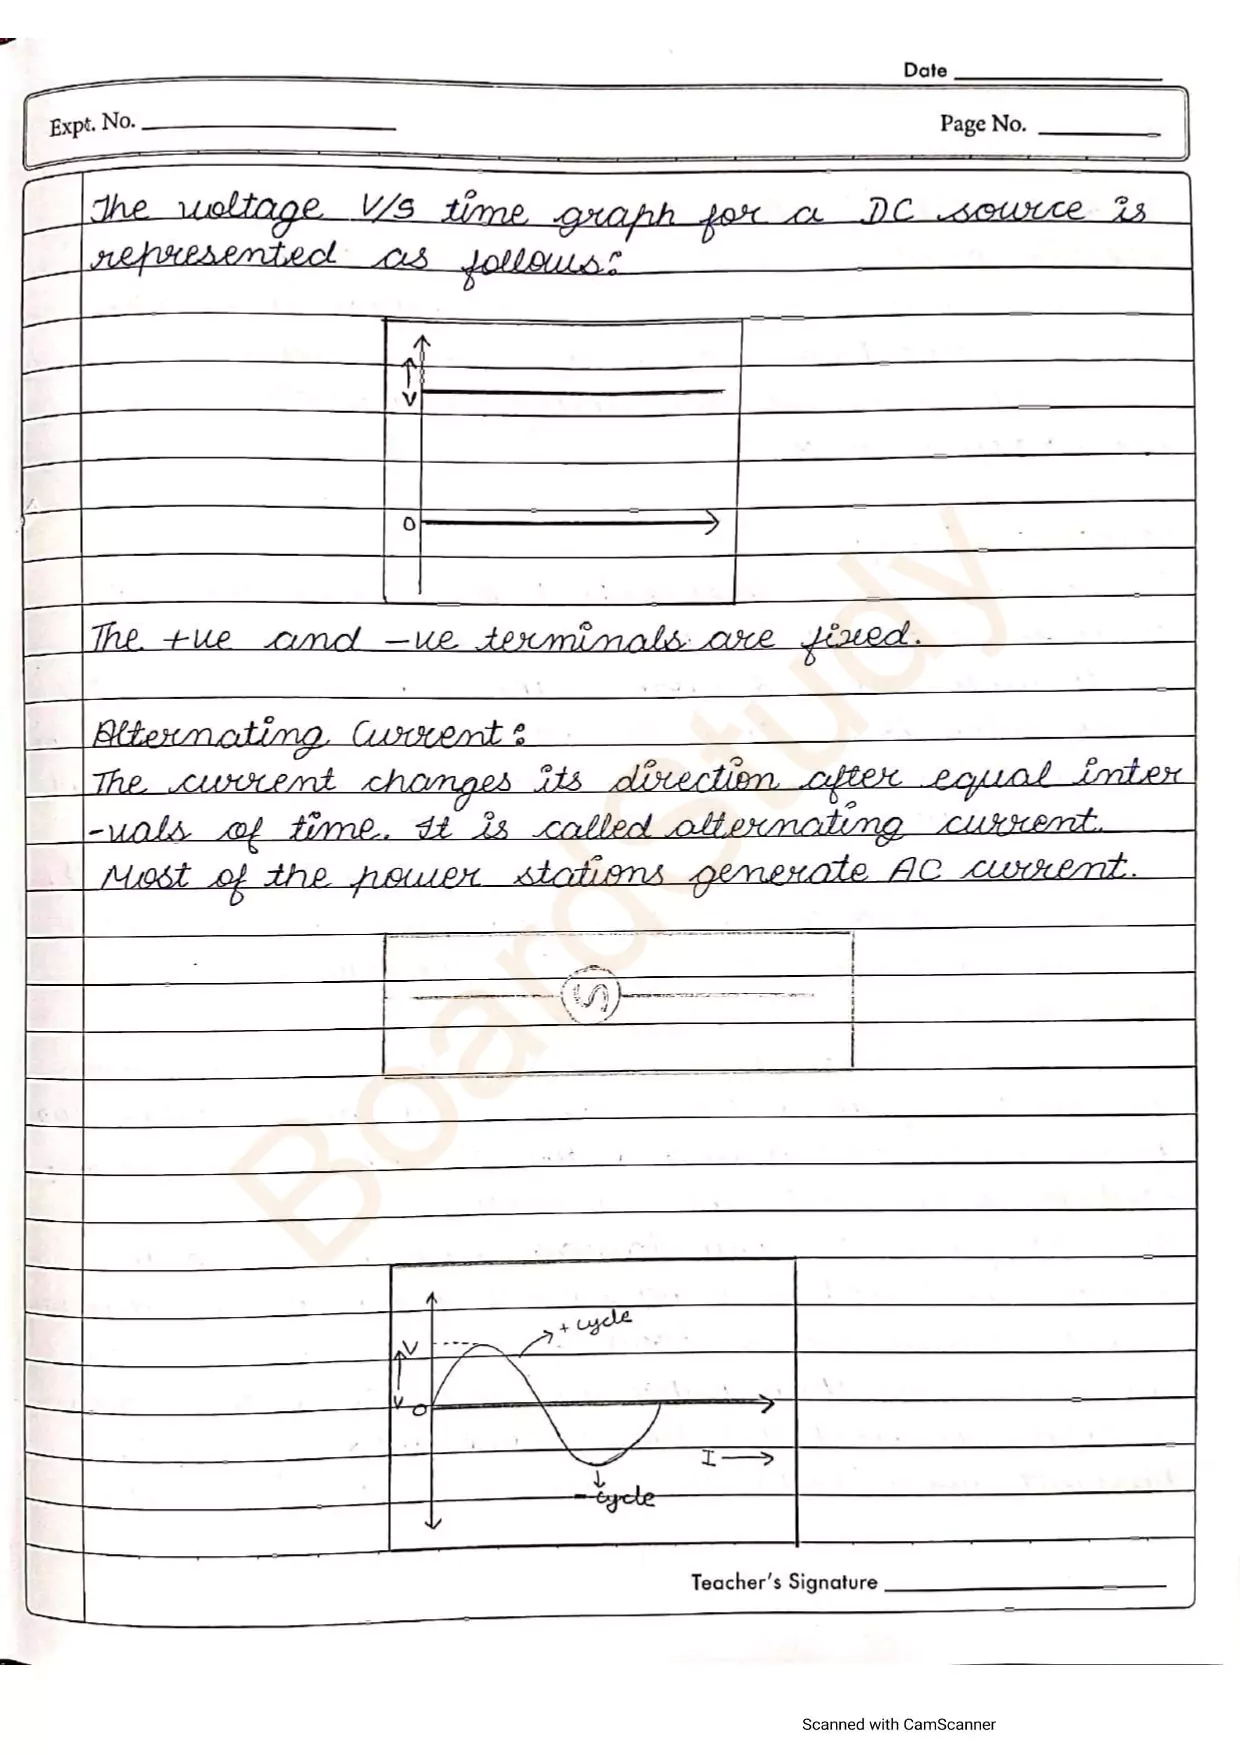 Date
Expt. No.
Page No.
The voltage V/S time graph for a DC source is
represented as follows:
V
0
The +ve and -ve terminals are fixed.
Alternating Current:
The current changes its direction after equal inter
-vals of time. It is called alternating current.
Most of the power stations generate AC current.
S
+ cycle
V
V
0
I
- cycle
Teacher's Signature
BoardStudy
Scanned with CamScanner